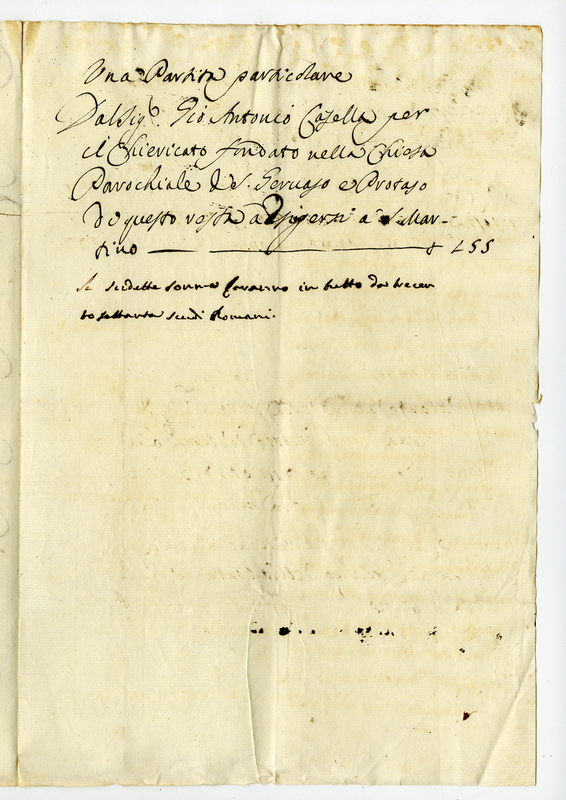 Una Partita particolare
Dal Sig.r Gio Antonio Casella per
il Chiericato fondato nella Chiesa
Parochiale di S. Gervaso e Protaso
di questo resta a a S. Mar-
tino 155
Le sudette somme saranno in tutto da trecen
to settanta scudi Romani.